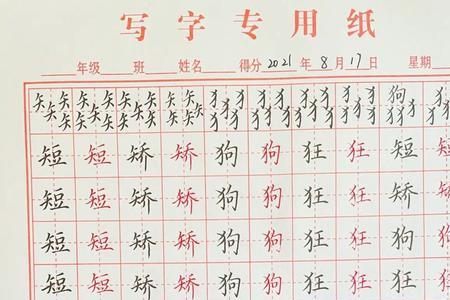 写字专用纸
年级 班 姓名 得分 2021 年 8 月 17 日 星期
矢 矢 矢 矢 犭 犭 犭 犭 狗
短 短 矫 矫 狗 狗 狂 狂 短 短
短 短 矫 矫 狗 狗 狂 狂 矫 矫
短 短 矫 矫 狗 狗 狂 狂 狗 狗
短 短 矫 矫 狗 狗 狂 狂 狂 狂